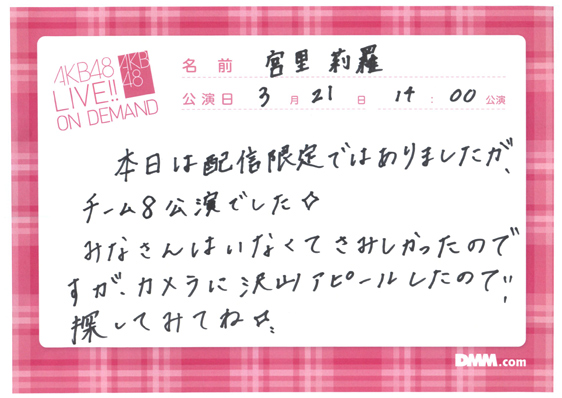 AKB48
LIVE!!
ON DEMAND
AKB
48
名前 宮里莉羅
公演日 3月21日 14:00公演
本日は配信限定ではありましたが、
チーム8公演でした☆
みなさんはいなくてさみしかったので
すが、カメラに沢山アピールしたので!!
探してみてね☆
DMM.com